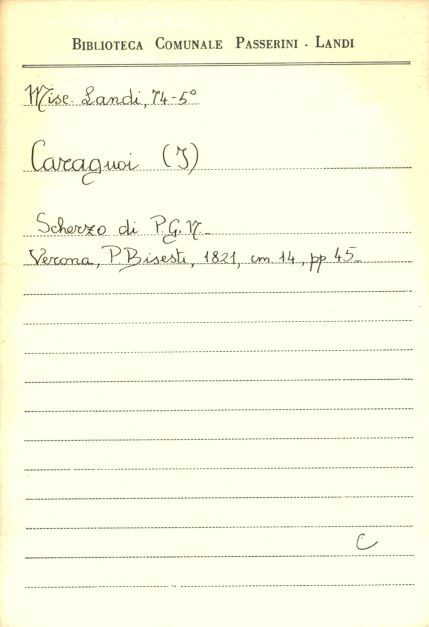 BIBLIOTECA COMUNALE PASSERINI - LANDI
Misc. Landi, 74-5°
Caraguoi (I)
Scherzo di P.G.N.
Verona, P. Bisesti, 1821, cm. 14, pp 45
C